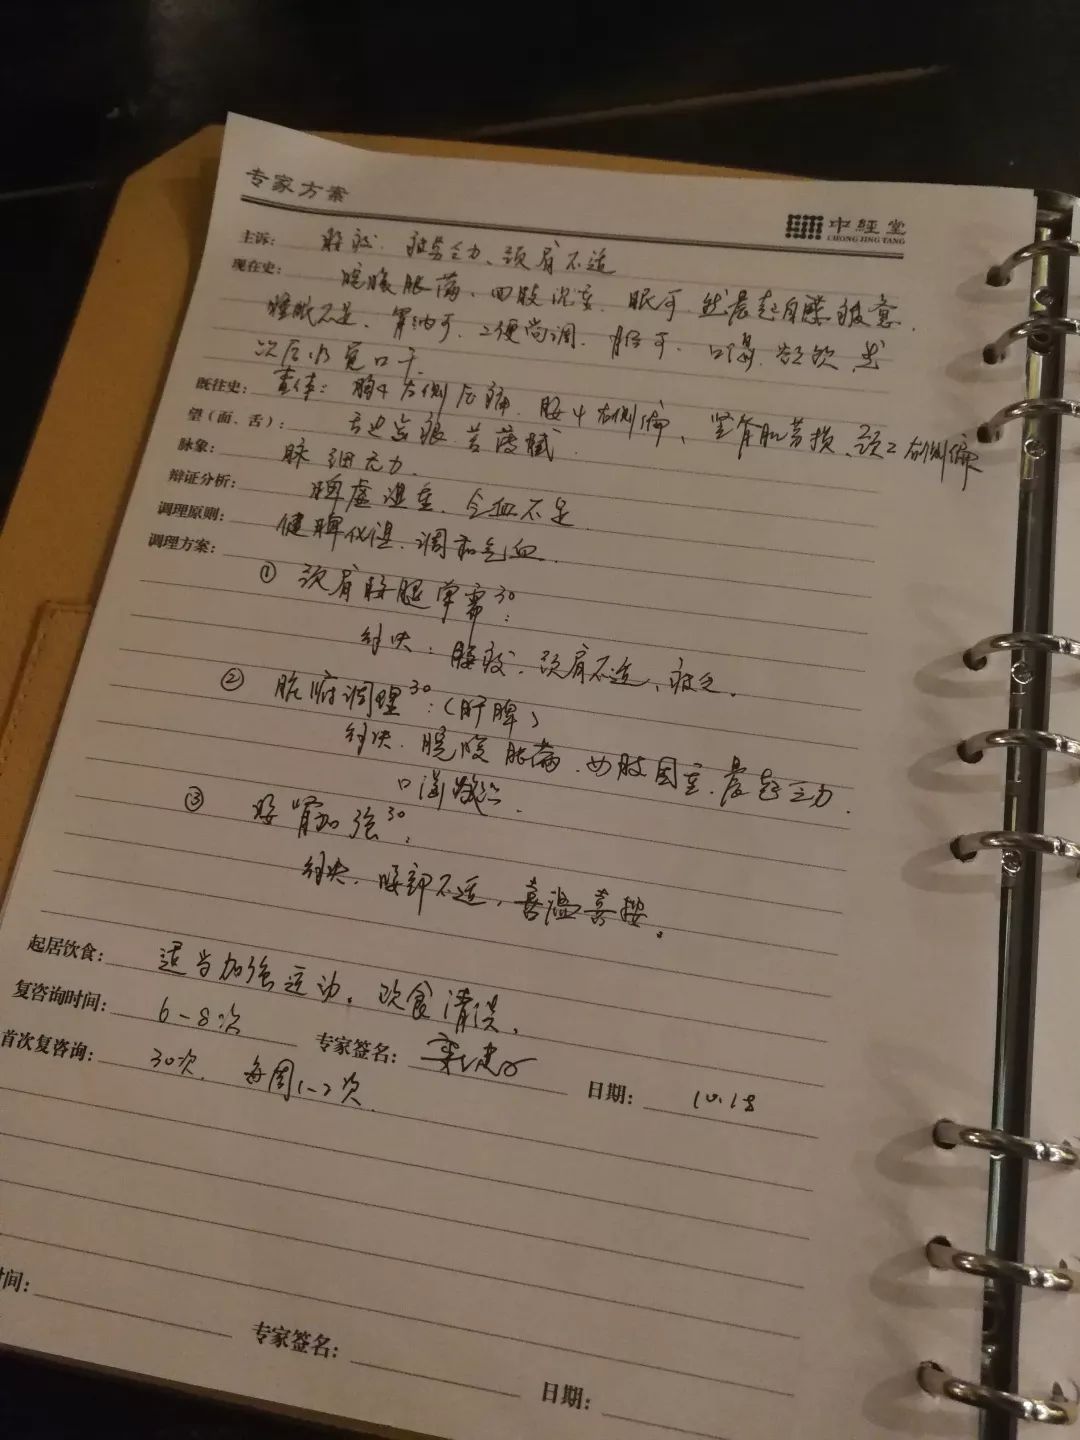 专家方案
中經堂
CHONG JING TANG
主诉: 腰酸、疲劳乏力、颈肩不适
现在史: 脘腹胀满、四肢沉重、眠可、然晨起自觉疲惫、
睡眠不足、胃纳可、二便尚调、口渴、欲饮
次后仍觉口干
既往史: 查体: 腰4右侧压痛、腰4右侧偏、竖脊肌劳损、颈2右侧偏
望(面、舌): 舌边齿痕 苔薄腻
脉象: 脉细无力.
辩证分析: 脾虚湿重、气血不足
调理原则: 健脾化湿、调和气血
调理方案:
① 颈肩腰腿 30:
针对: 腰酸、颈肩不适、疲乏。
② 脏腑调理30: (肝脾)
针对、脘腹胀满、四肢困重、晨起乏力.
口渴
③ 腰肾加强30:
针对、腰部不适、喜温喜按。
起居饮食: 适当加强运动。饮食清淡.
复咨询时间: 6-8次 专家签名: 日期: 10.18
首次复咨询: 30次. 每周1-2次
时间:
专家签名:
日期: